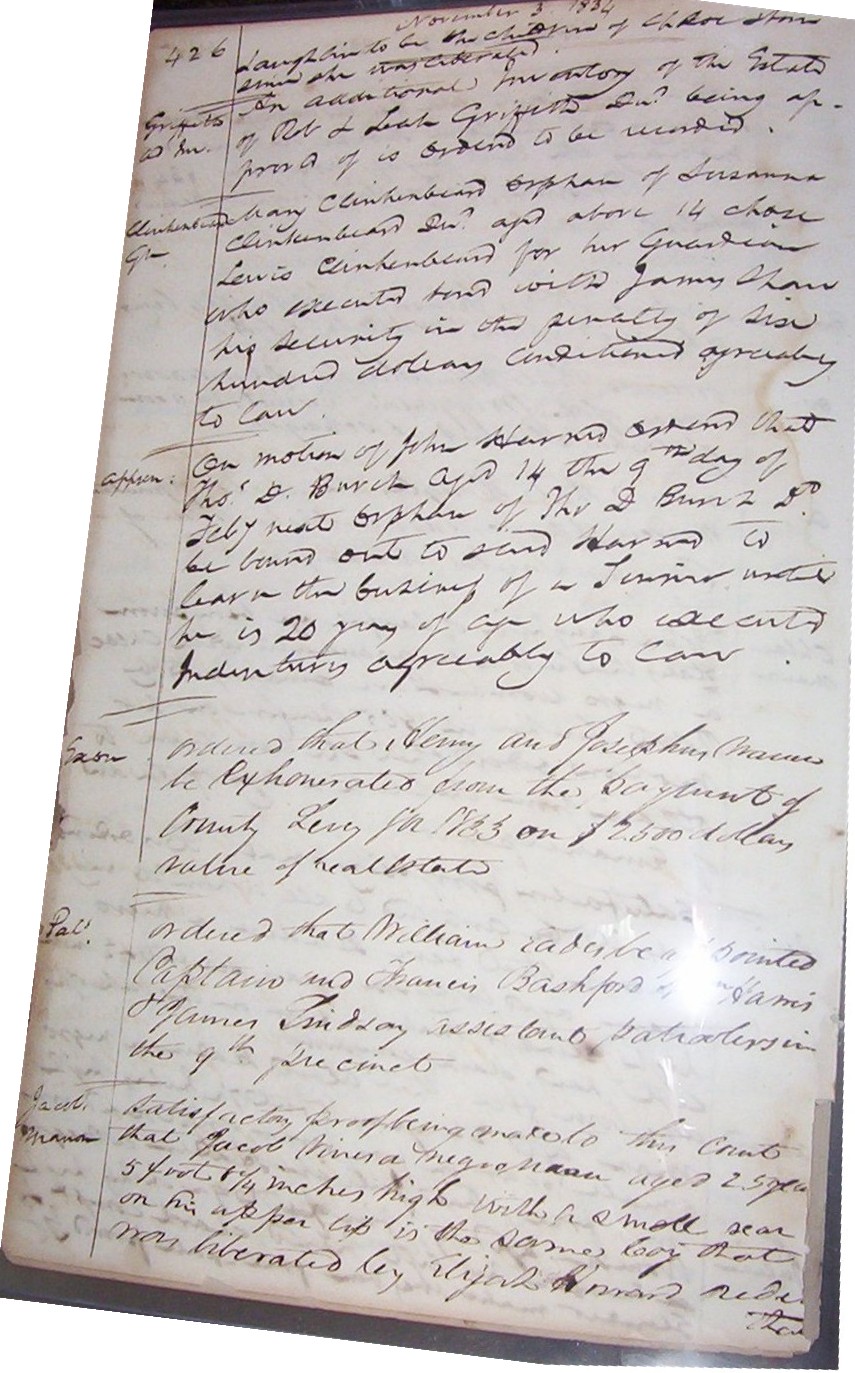 November 3. 1834
426
Laughlin to be the children of Chloe
since she was liberated.
Griffith
An additional Inventory of the Estate
of Rob & Leah Griffith Decd being ap-
proved of is ordered to be recorded.
Clinkenbeard
Gn
Mary Clinkenbeard orphan of Susanna
Clinkenbeard Decd aged above 14 chose
Lewis Clinkenbeard for her Guardian
who executed bond with James Shaw
his security in the penalty of six
hundred dollars conditioned agreeably
to Law.
appren:
On motion of John Harned ordered that
Thos D. Burch aged 14 the 9th day of
Feby next orphan of Tho D Burch Dd
be bound out to said Harned to
learn the business of a until
he is 20 years of age who executed
Indentures agreeably to Law.
Exon
ordered that Henry and Josephus
be Exhonerated from the payment of
County Levy for 1833 on $2500 dollars
value of real Estate
Pat.
ordered that William be appointed
Captain and Francis Bashford Harris
& James Lindsay assistant patrolers in
the 9th precinct
Jacob
satisfactory proof being made to this Court
that Jacob a negro man aged 25 years
5 foot 8 1/4 inches high with a small scar
on his upper lip is the same boy that
was liberated by Elijah Howard